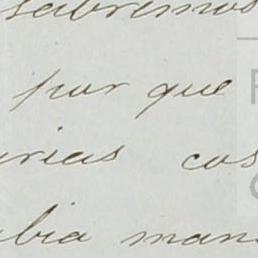 sabremos
por que
urias cos
abia man